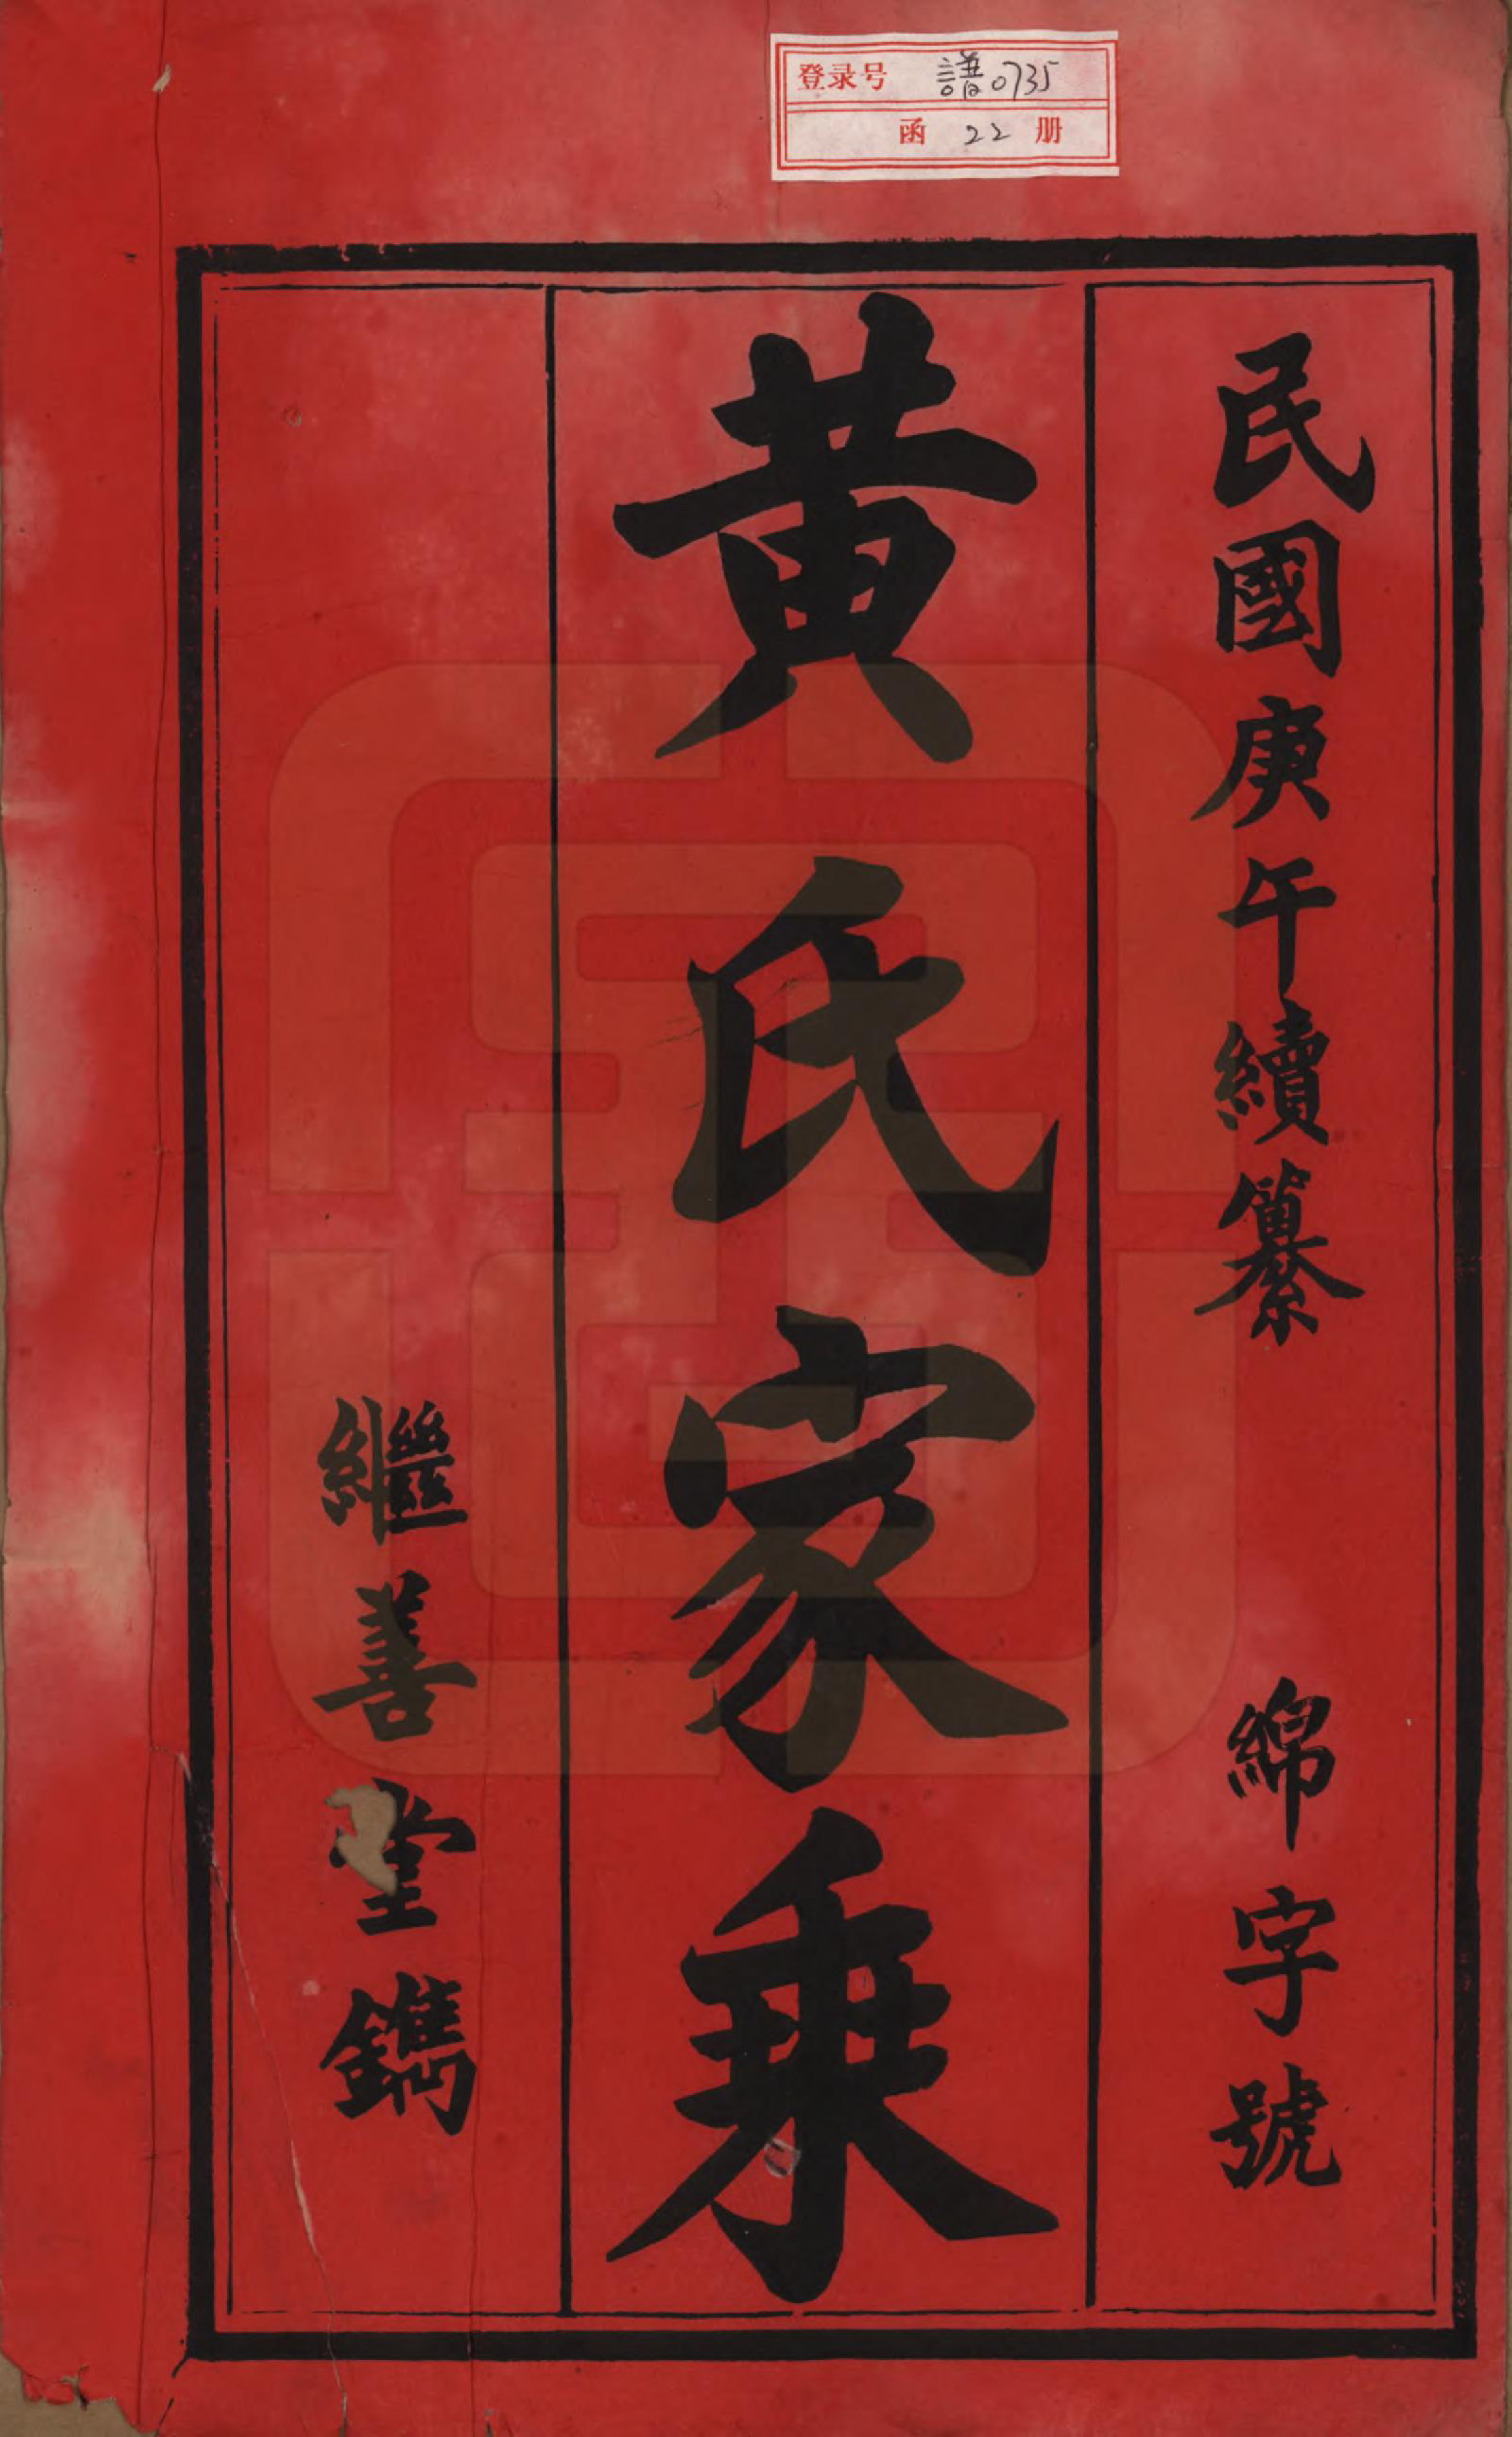 登录号 譜0735
函 22 册
民國庚午續纂 綿字號
黄氏家乘
繼善堂鐫